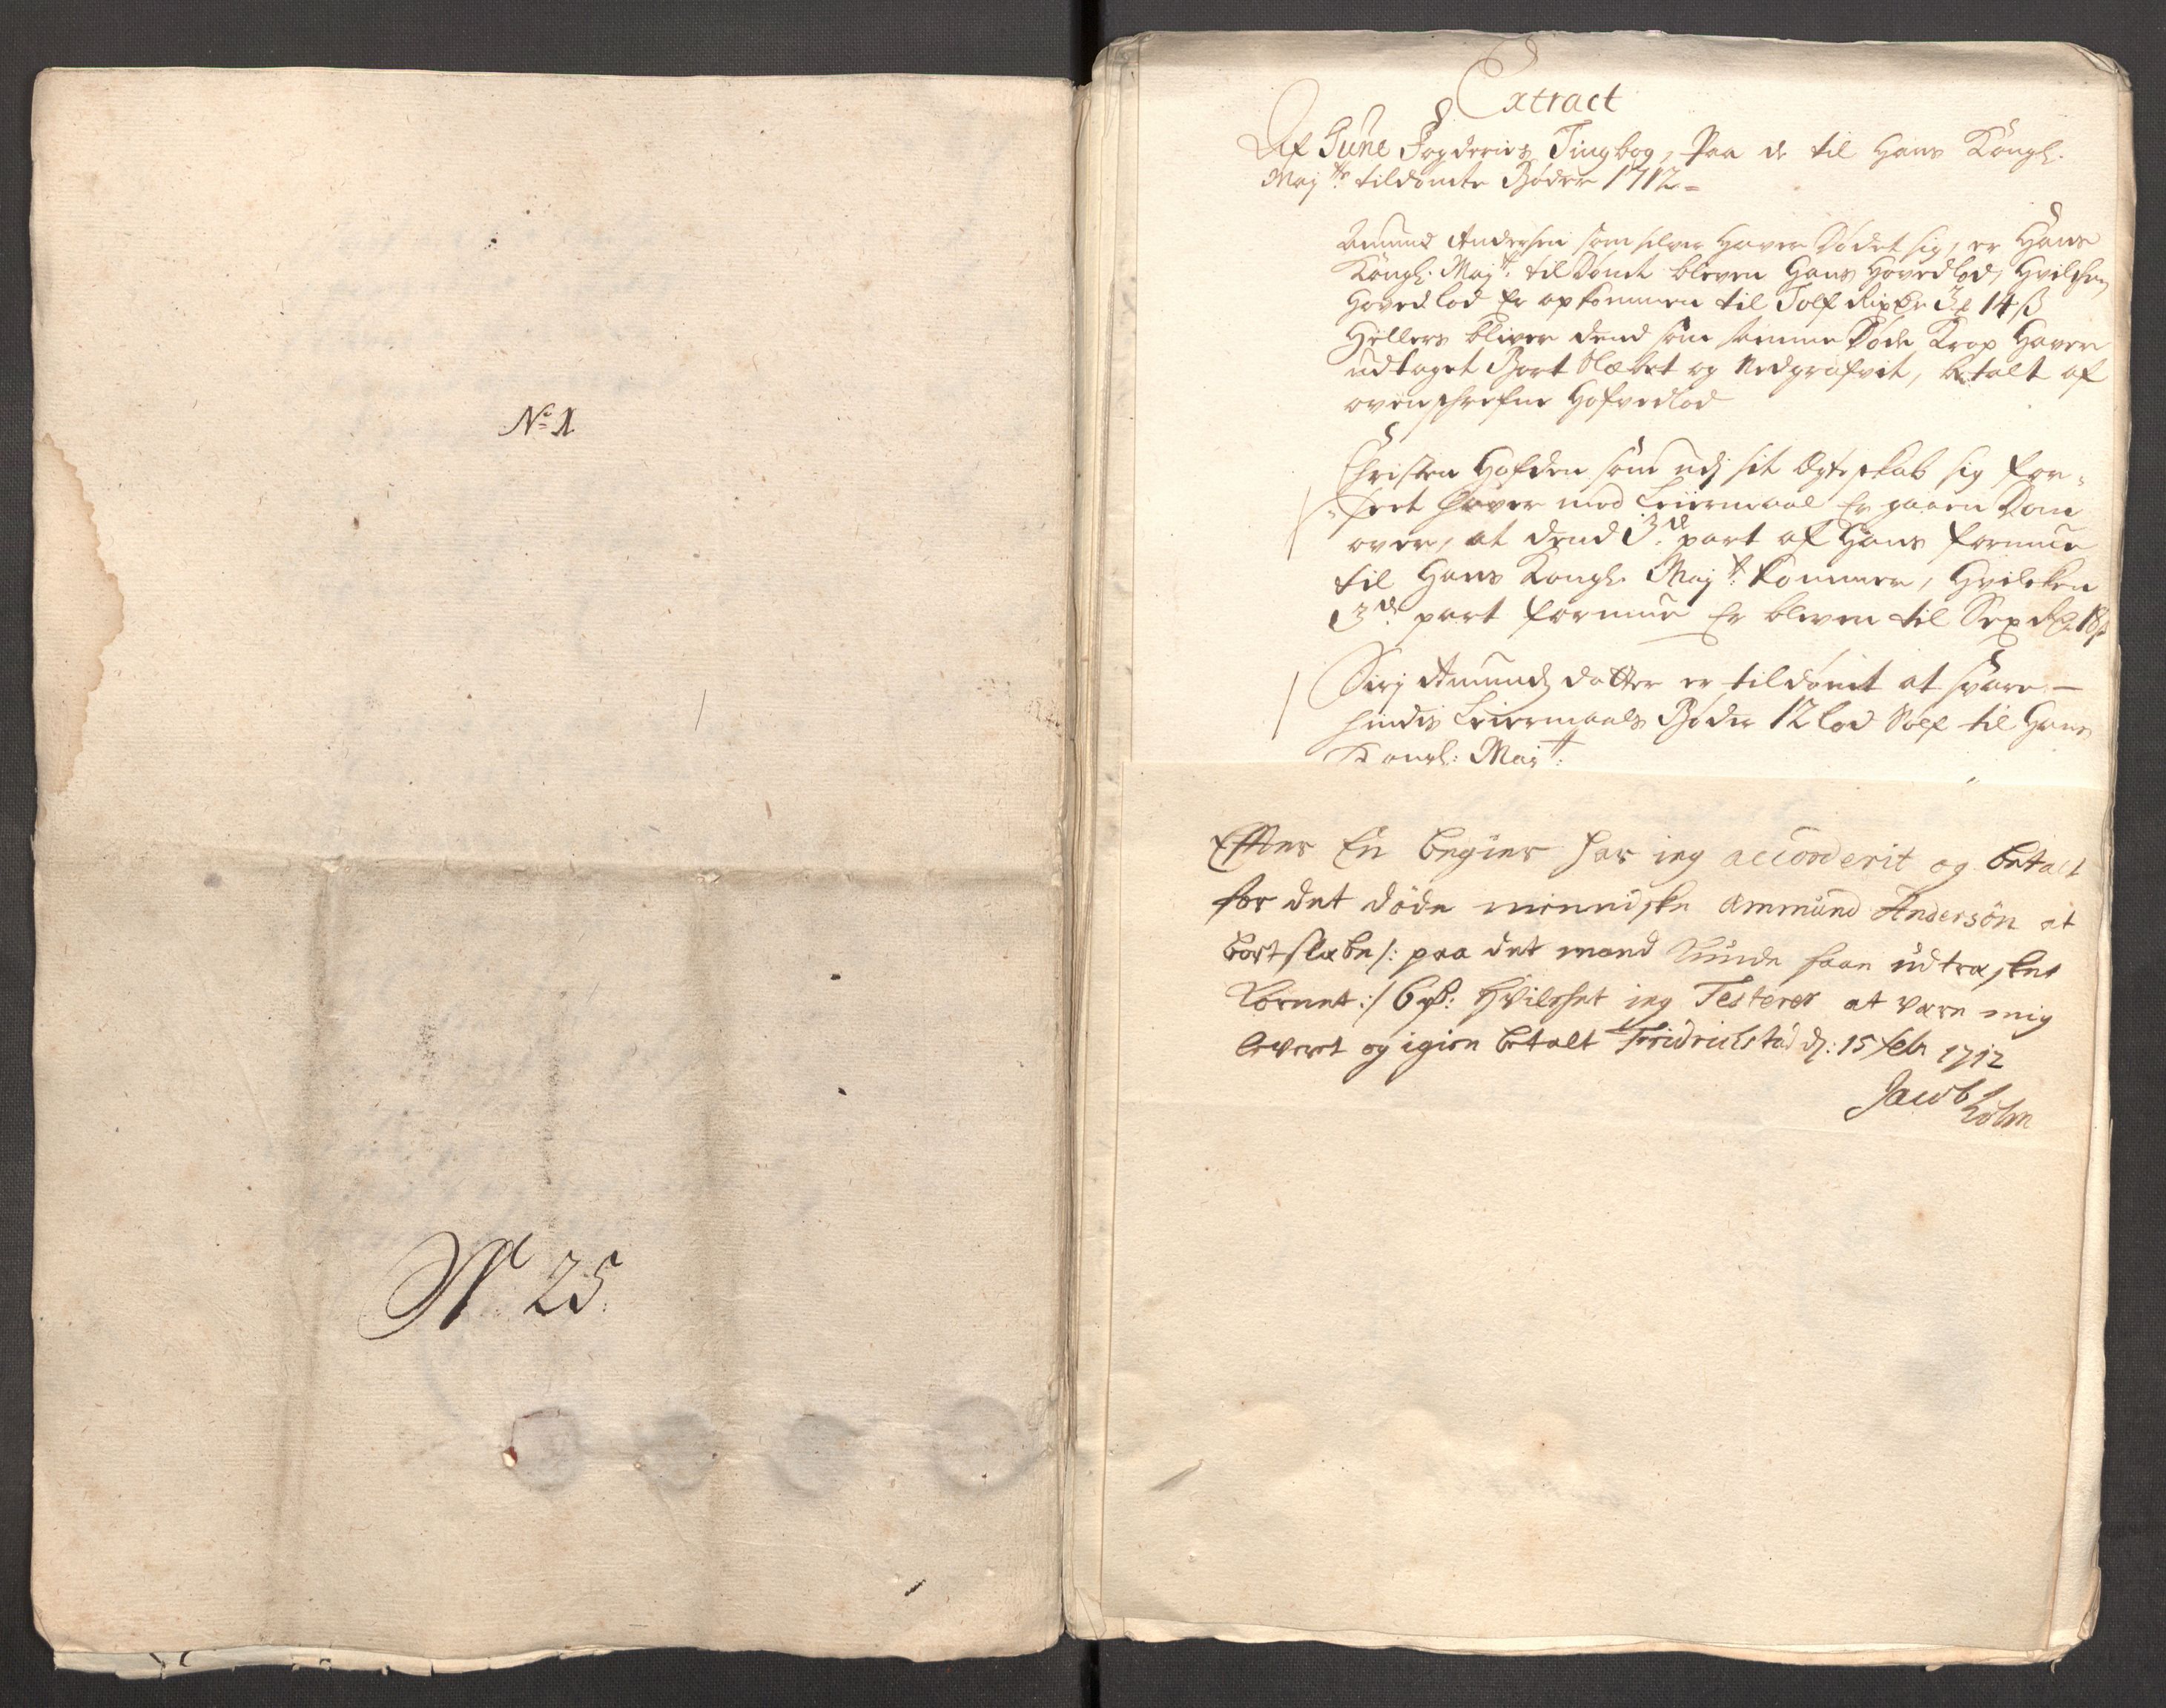 No 1
No 25
Extract
Af Tune Fogderies Tingbog, Paa de til Hans Kongl:
Mayts tildømte Bøder 1712
Amund Andersen som selver haver Dødet sig, er Hans
Kongl: Mayt: til Dømt bleven Hans Hovedlod, Hvilchen
Hovedlod Er opkommen til Tolf Rixdr 3 14 ß
Hellers bliver dend som samme Døde Krop Haver
udtaget Bort Slæbet og Nedgrafvit, betalt af
ovenschrefne Hofvedlod
Christen Hafsden som udj sit Ægteskab sig for-
-seet haver med Leiermaal Er gaaen Dom
over, at dend 3de part af Hans formue
til Hans Kongl: Mayt: kommer, Hvilcken
3de part formue Er bleven til Sex Rdr 18 ß
Sirj Amundsdatter er tildømt at svare
hindis Leiermaals Bøder 12 lod Sølf til Hans
Kongl: Mayt:
Effter En begier har ieg accorderit og betalt
for det døde menniske Ammund Andersøn at
bortslæbe /: paa det mand kunde faae udtrasket
Kornet :/ 6 rdr: Hvilchet ieg Testerer at være mig
leveret og igien betalt Fridrichstad d: 15 febr 1712
Jacob Holm